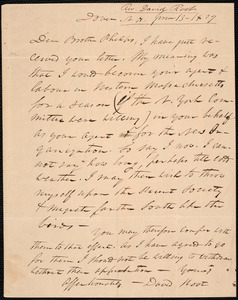 Rev. David Root
Dover N.H. June 13-1839
Dear Brother Phelps, I have just re-
ceived your letter. My meaning was
that I would become your agent &
labour in Western Massachusetts
for a season (if the N. York Com-
mittee were willing) in your behalf
as your agent for the New Or-
ganization. So say I now. I can-
not say how long, perhaps till cold
weather. I may then wish to throw
myself upon the Parent Society
& migrate farther South like the
birds—
You may therefore confer with
them to that effect. As I have agreed to go
for them I should not be willing to
without their approbation — Yours
Affectionately — David Root